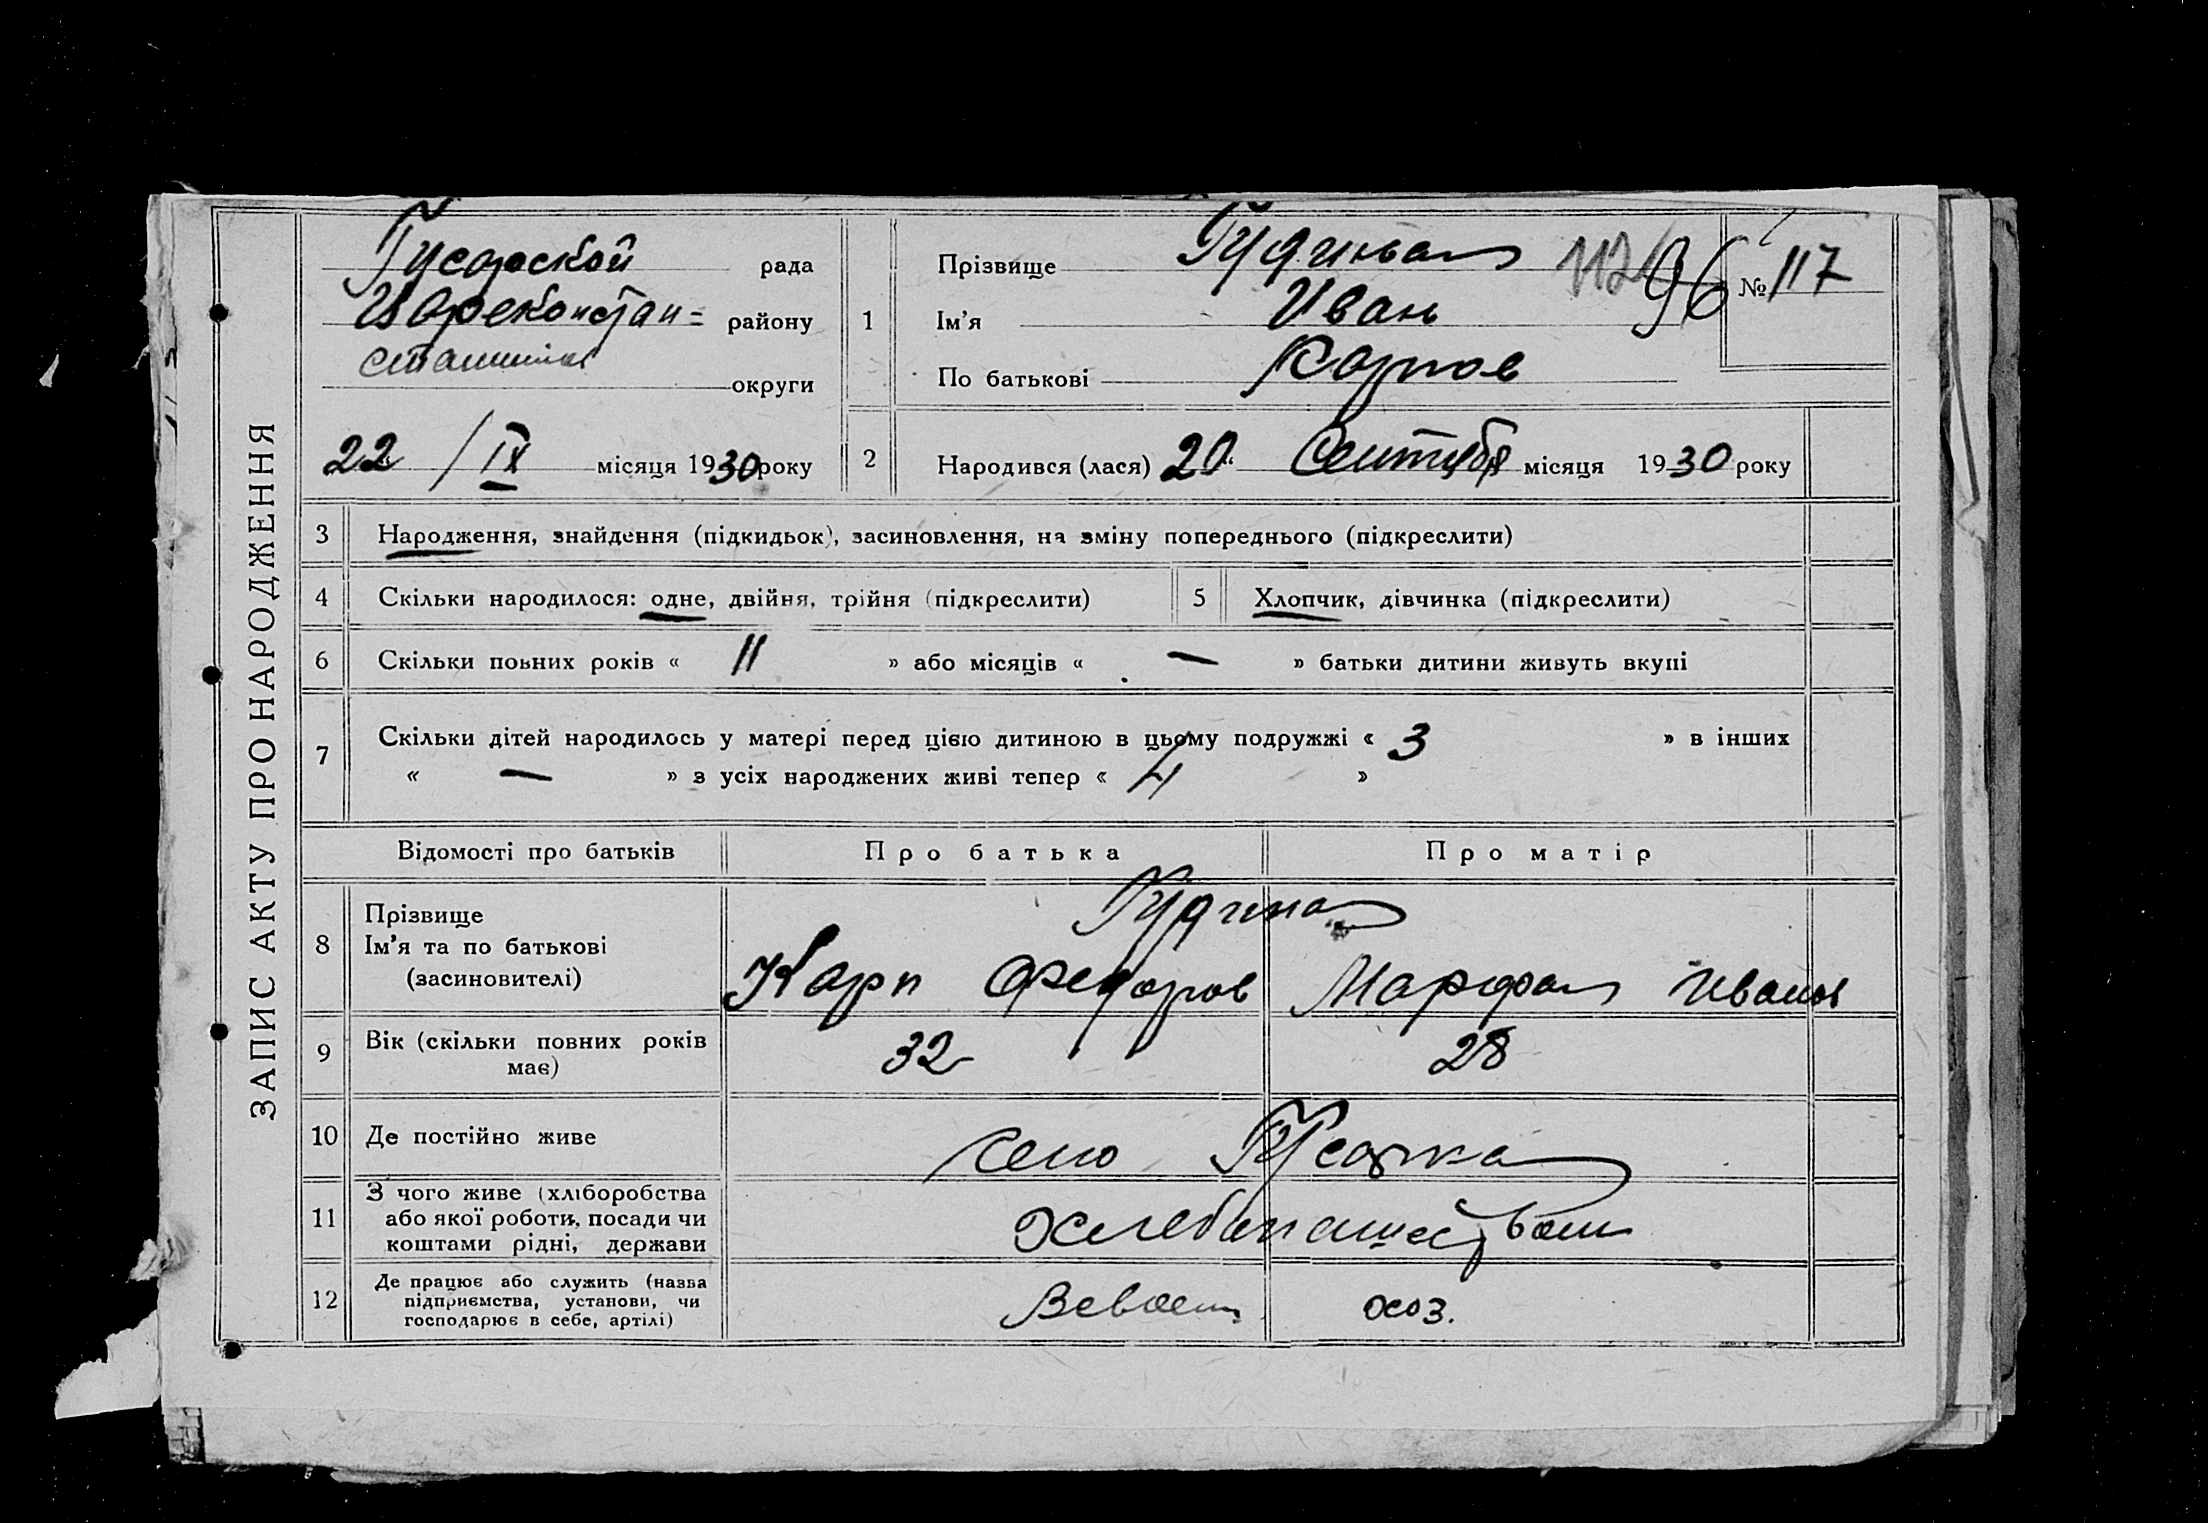 ЗАПИС АКТУ ПРО НАРОДЖЕННЯ
Гусарской рада
району
округи
22 / IX місяця 1930 року
1
Прізвище
Ім'я Иван
По батькові Карпов
96
№ 117
2
Народився (лася) 20 “ Сентября місяця 1930 року
3 Народження, знайдення (підкидьок), засиновлення, на зміну попереднього (підкреслити)
4 Скільки народилося: одне, двійня, трійня (підкреслити)
5 Хлопчик, дівчинка (підкреслити)
6 Скільки повних років « 11 » або місяців « — » батьки дитини живуть вкупі
7 Скільки дітей народилось у матері перед цією дитиною в цьому подружжі « 3 » в інших
« — » з усіх народжених живі тепер « 4 »
Відомості про батьків Про батька Про матір
8 Прізвище
Ім'я та по батькові
(засиновителі)
Гудина
Карп Федоров Марфа Иванов
9 Вік (скільки повних років
має)
32 28
10 Де постійно живе село Гусарка
11 З чого живе (хліборобства
або якої роботи, посади чи
коштами рідні, держави
Хлебопашеством
12 Де працює або служить (назва
підприємства, установи, чи
господарює в себе, артілі)